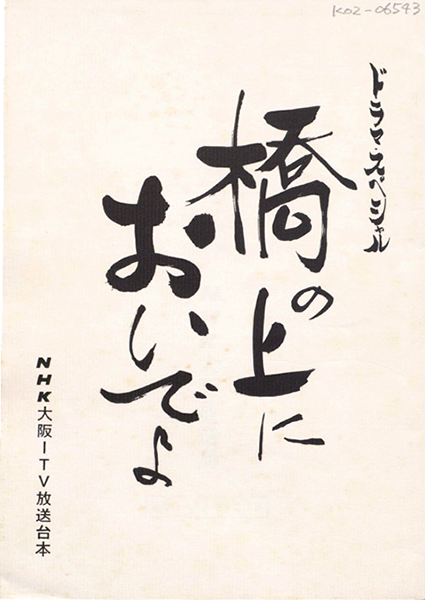 K02-06543
ドラマ・スペシャル
橋の上に
おいでよ
NHK大阪-TV放送台本